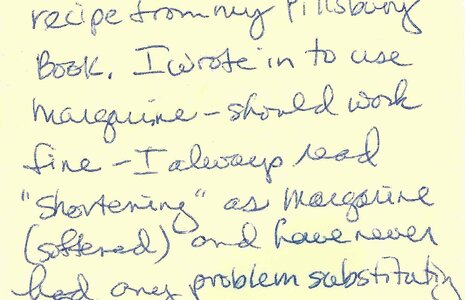 recipe from my Pillsbury
Book. I wrote in to use
margarine - should work
fine - I always read
"shortening" as margarine
(softened) and have never
had any problem substituting